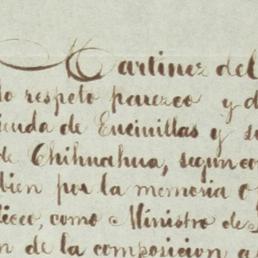 Martinez del
respeto parezco y d
de Encinillas y s
de Chihuahua, segun co
bien por la memoria
como Ministro de
de la composicion a